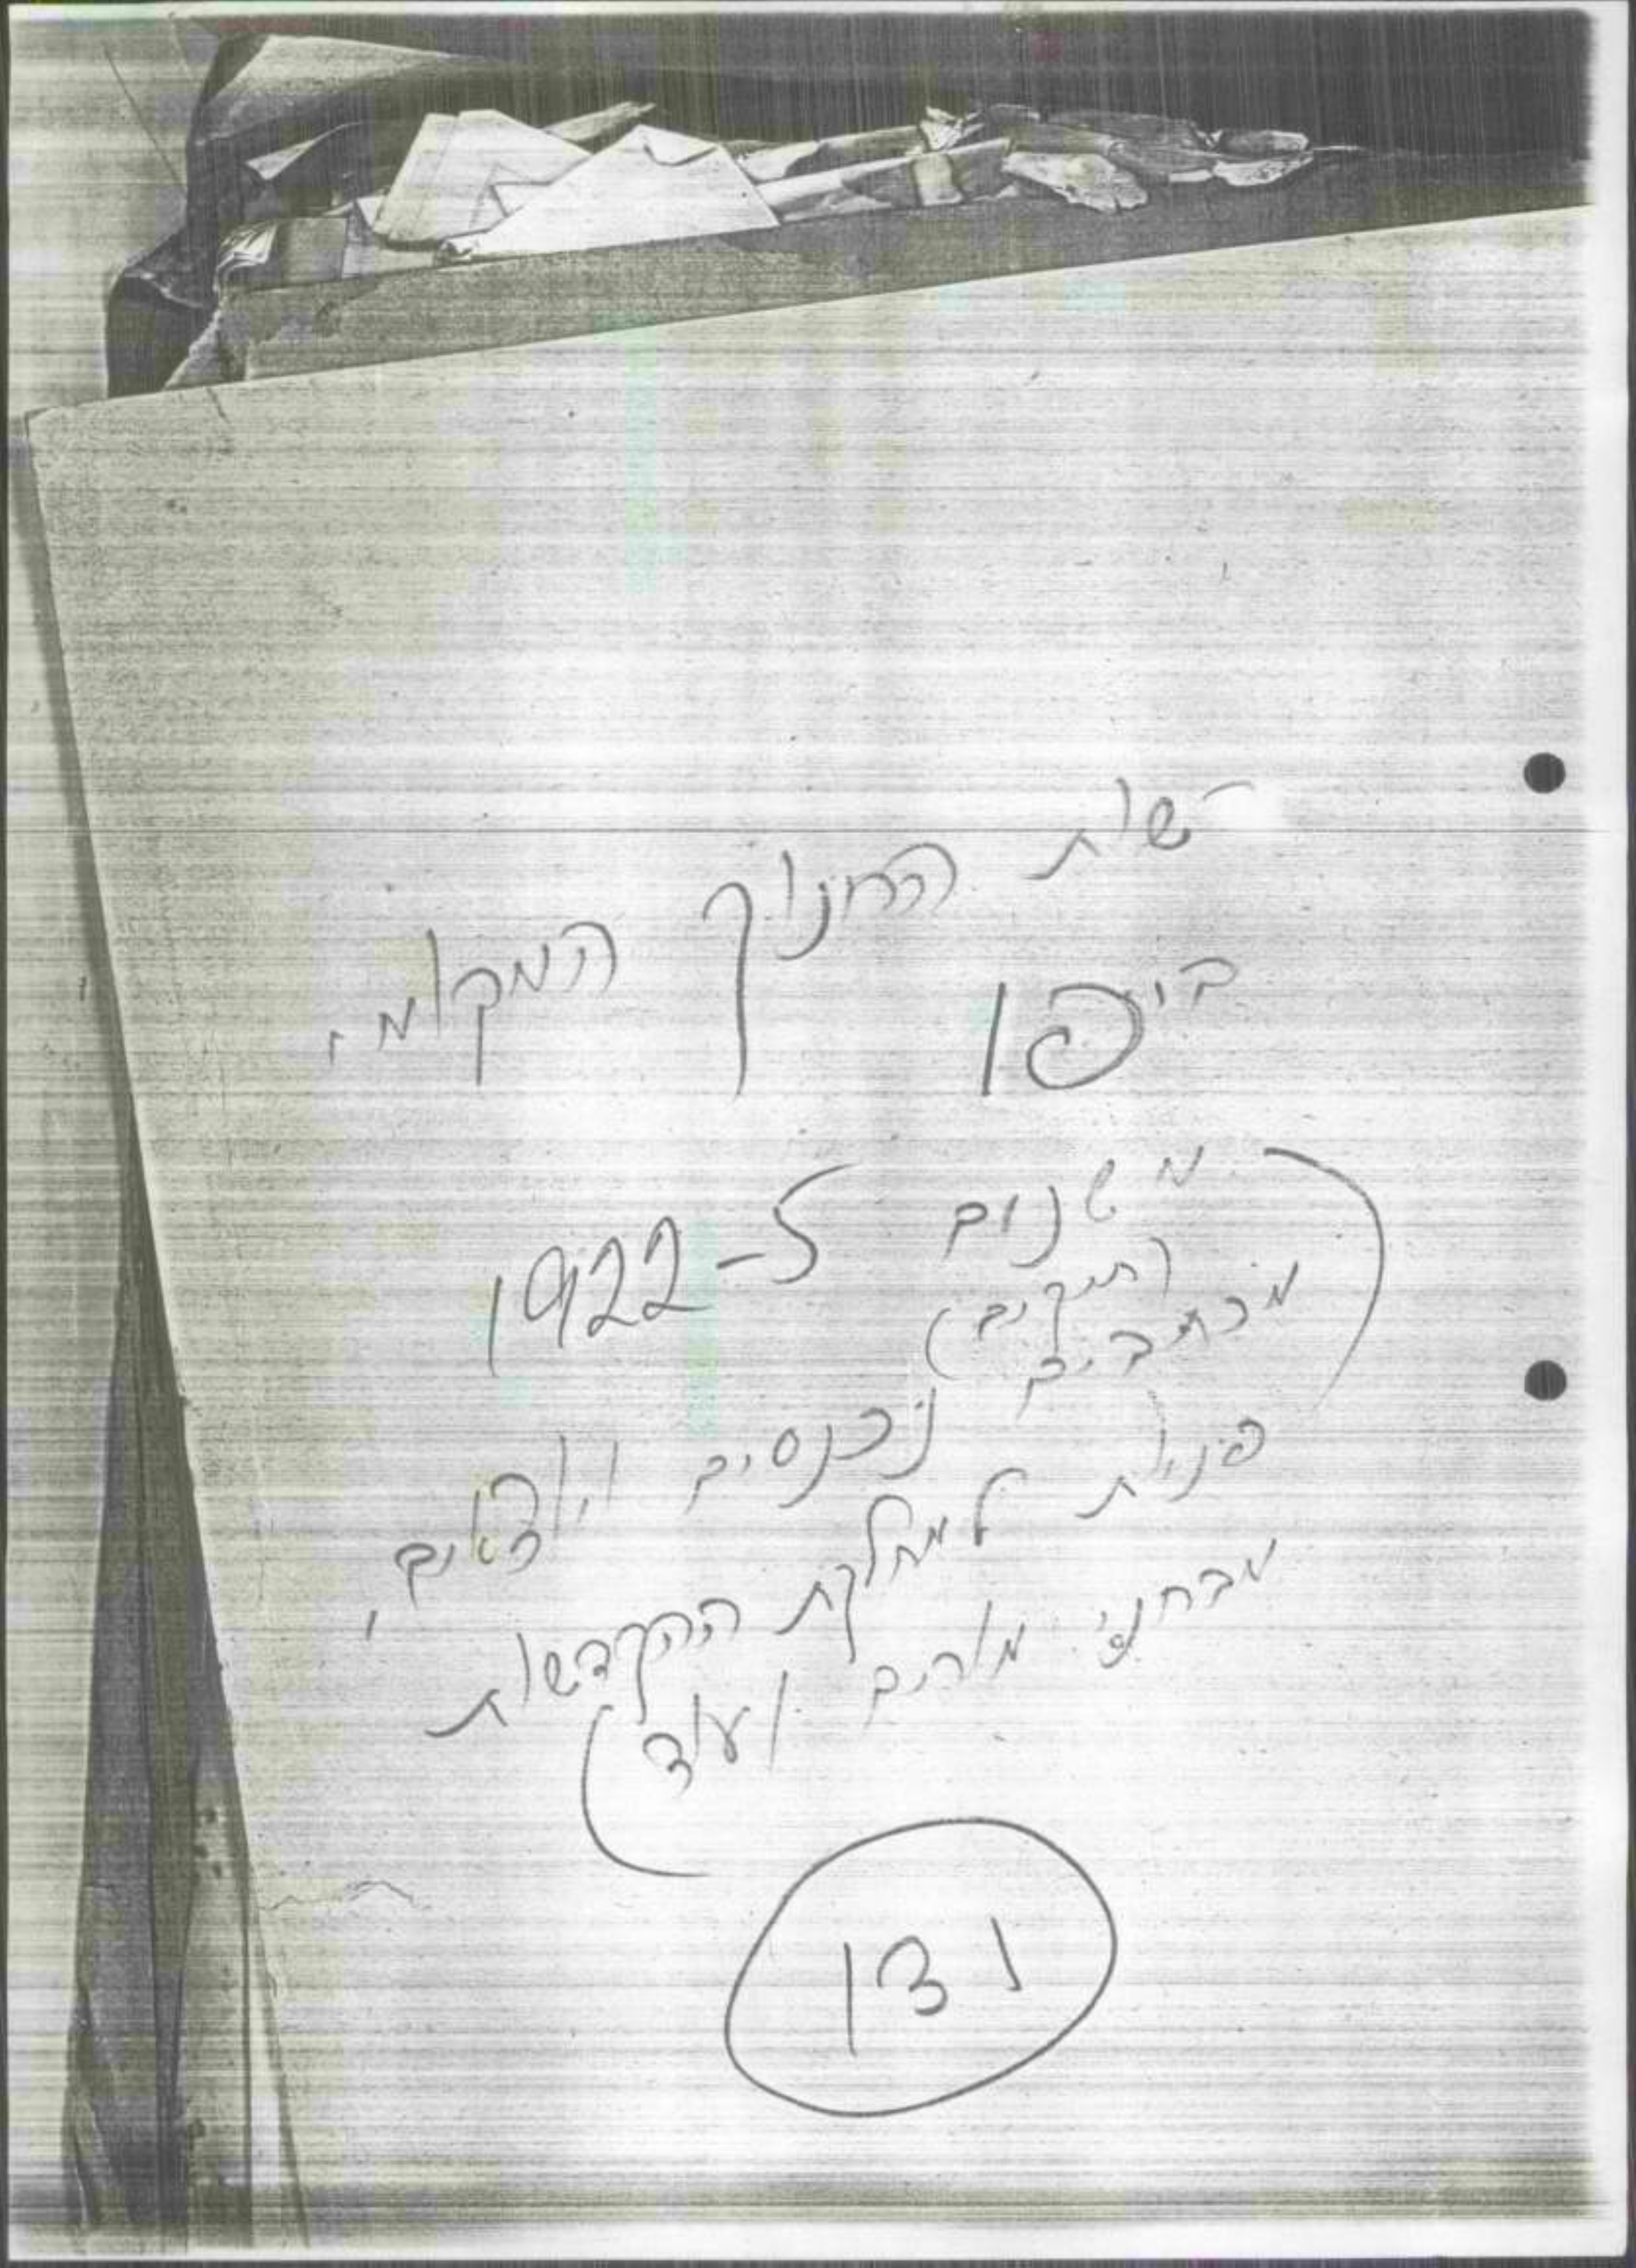 רשות החנוך המקומי
ביפו
(משנים 1922-5
(תיקים)
מכתבים נכנסים ויוצאים,
פניות למחלקת ההקדשות
מבחני מורים ועוד)
131